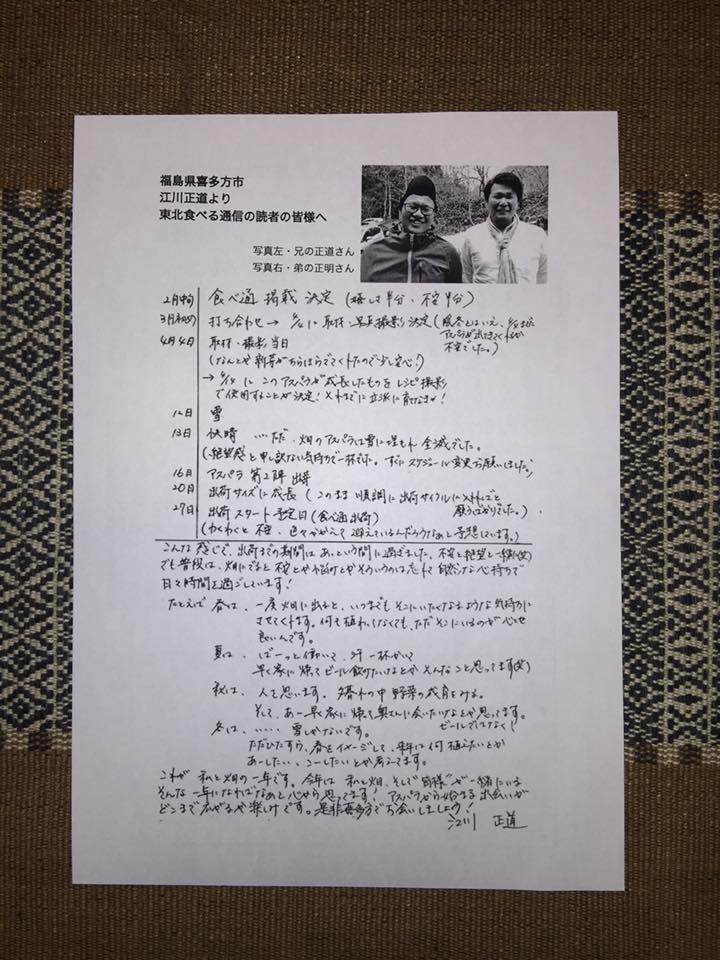 福島県喜多方市
江川正道より
東北食べる通信の読者の皆様へ
写真左・兄の正道さん
写真右・弟の正明さん
2月中旬 食べ通 掲載 決定 (嬉しさ半分、不安半分)
3月初め 打ち合わせ → 4/4に 取材・写真撮影 決定 (風冬とはいえ、4/4までに
アスパラが出てきてくれるか
不安でした。)
4月4日 取材・撮影当日
(なんとか新芽がちらほらでてくれたので少し安心!)
→ 4/14 に このアスパラが成長したものを レシピ撮影
で使用することが決定! それまでに立派に育てなきゃ!
12日 雪
13日 快晴 ……だ、畑のアスパラは雪に埋もれ 全滅でした。
(絶望感と申し訳ない気持ちで一杯でした。すぐにスケジュール変更お願いしました。)
16日 アスパラ 第2陣 出芽
20日 出荷サイズに成長 (このまま順調に出荷サイクルに入れればと
願うばかりでした。)
27日 出荷スタート予定日 (食べ通出荷)
(わくわくと 不安、色々かかえて 迎えているんだろうなぁと予想しています。)
こんな感じで、出荷までの期間は、あっという間に過ぎました。不安と絶望と一緒に(笑)
でも普段は、畑にでると 不安とか悩みとかそういうのは忘れて 自然な心持ちで
日々時間を過ごしています!
たとえば 春は、一度畑に出ると、いつまでもそこにいたくなるような気持ちに
させてくれます。何も植わってなくても、ただそこにいるのが心地
良いんです。
夏は、ばーっと働いて、汗一杯かいて
早く家に帰ってビール飲みたいなとか そんなこと思ってます(笑)
秋は、人を思います。夕暮れの中 野菜の成育をみる。
そして、あー早く家に帰って奥さんに会いたいなとか思ってます。
ビールではなく!
冬は、…… 雪しかないです。
ただひたすら、春をイメージして、来年は何植えたいとか
あーしたい、こーしたいとか考えてます。
これが 私と畑の一年です。今年は 私と畑、そして皆様が一緒にいる
そんな一年になればなぁと心から思ってます! アスパラから始まる出会いが
どこまで広がるか楽しみです。是非喜多方でお会いしましょう!
江川 正道